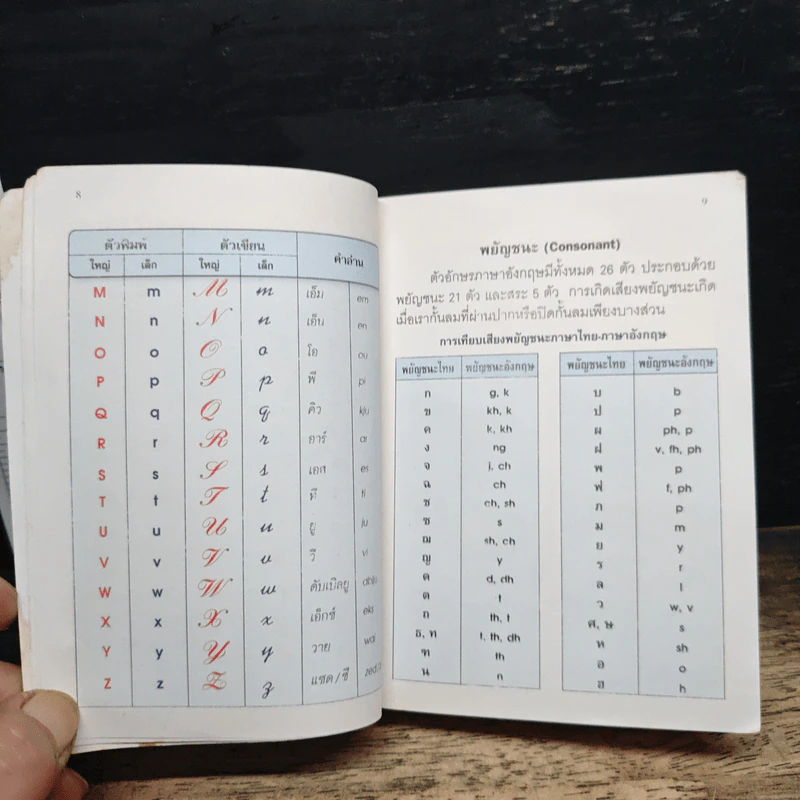 8
ตัวพิมพ์ ตัวเขียน คำอ่าน
ใหญ่ เล็ก ใหญ่ เล็ก
M m M m เอ็ม em
N n N n เอ็น en
O o O o โอ ou
P p P p พี pi
Q q Q q คิว kju
R r R r อาร์ ar
S s S s เอส es
T t T t ที ti
U u U u ยู ju
V v V v วี vi
W w W w ดับเบิลยู
X x X x เอ็กซ์ eks
Y y Y y วาย wai
Z z Z z แซด / ซี
9
พยัญชนะ (Consonant)
ตัวอักษรภาษาอังกฤษมีทั้งหมด 26 ตัว ประกอบด้วย
พยัญชนะ 21 ตัว และสระ 5 ตัว การเกิดเสียงพยัญชนะเกิด
เมื่อเรากั้นลมที่ผ่านปากหรือปิดกั้นลมเพียงบางส่วน
การเทียบเสียงพยัญชนะภาษาไทย-ภาษาอังกฤษ
พยัญชนะไทย พยัญชนะอังกฤษ
ก g, k
ข kh, k
ค k, kh
ง ng
จ j, ch
ฉ ch
ช ch, sh
ซ s
ฌ sh, ch
ญ y
ด d, dh
ต t
ถ th, t
ธ, ท t, th, dh
ฑ th
น n
พยัญชนะไทย พยัญชนะอังกฤษ
บ b
ป p
ผ ph, p
ฝ v, fh, ph
พ p
ฟ f, ph
ภ p
ม m
ย y
ร r
ล l
ว w, v
ศ, ษ s
ห sh
อ o
ฮ h